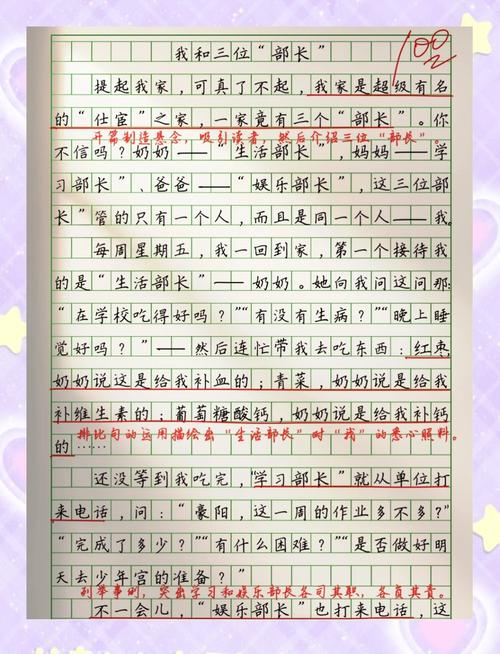 我和三位“部长”
100
提起我家，可真了不起，我家是超级有名
的“仕宦”之家，一家竟有三个“部长”。你
开篇制造悬念，吸引读者，然后介绍三位“部长”。
不信吗？奶奶——“生活部长”，妈妈——“学
习部长”、爸爸——“娱乐部长”，这三位部
长”管的只有一个人，而且是同一个人——我。
每周星期五，我一回到家，第一个接待我
的是“生活部长”——奶奶。她向我问这问那：
“在学校吃得好吗？”“有没有生病？”“晚上睡
觉好吗？”——然后连忙带我去吃东西：红枣
奶奶说这是给我补血的；青菜，奶奶说是给我
补维生素的；葡萄糖酸钙，奶奶说是给我补钙
排比句的运用描绘出“生活部长”对“我”的悉心照料。
的……
还没等到我吃完，“学习部长”就从单位打
来电话，问：“豪阳，这一周的作业多不多？”
“完成了多少？”“有什么困难？”“是否做好明
天去少年宫的准备？”
列举事例，突出学习和娱乐部长各司其职，各负其责。
不一会儿，“娱乐部长”也打来电话，这